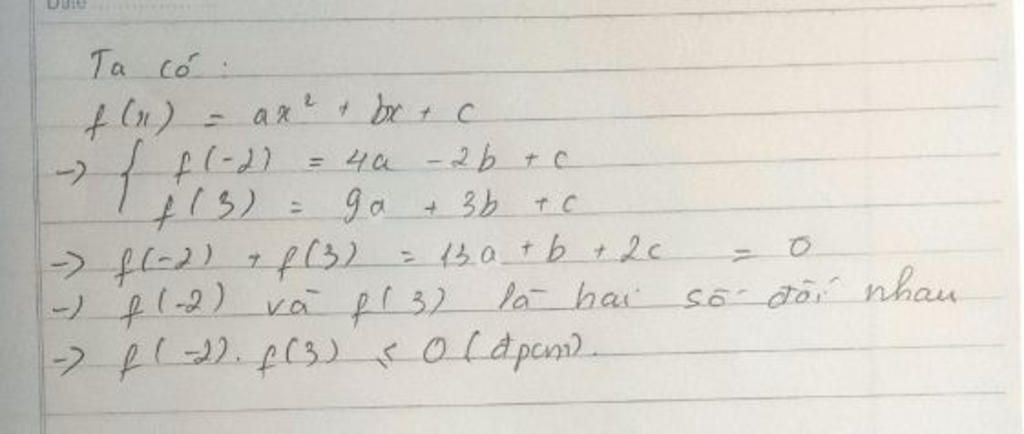 Date
Ta có :
f(x) = ax² + bx + c
→ { f(-2) = 4a - 2b + c
f(3) = 9a + 3b + c
→ f(-2) + f(3) = 13a + b + 2c = 0
→ f(-2) và f(3) là hai số đối nhau
→ f(-2). f(3) ≤ 0 (đpcm).